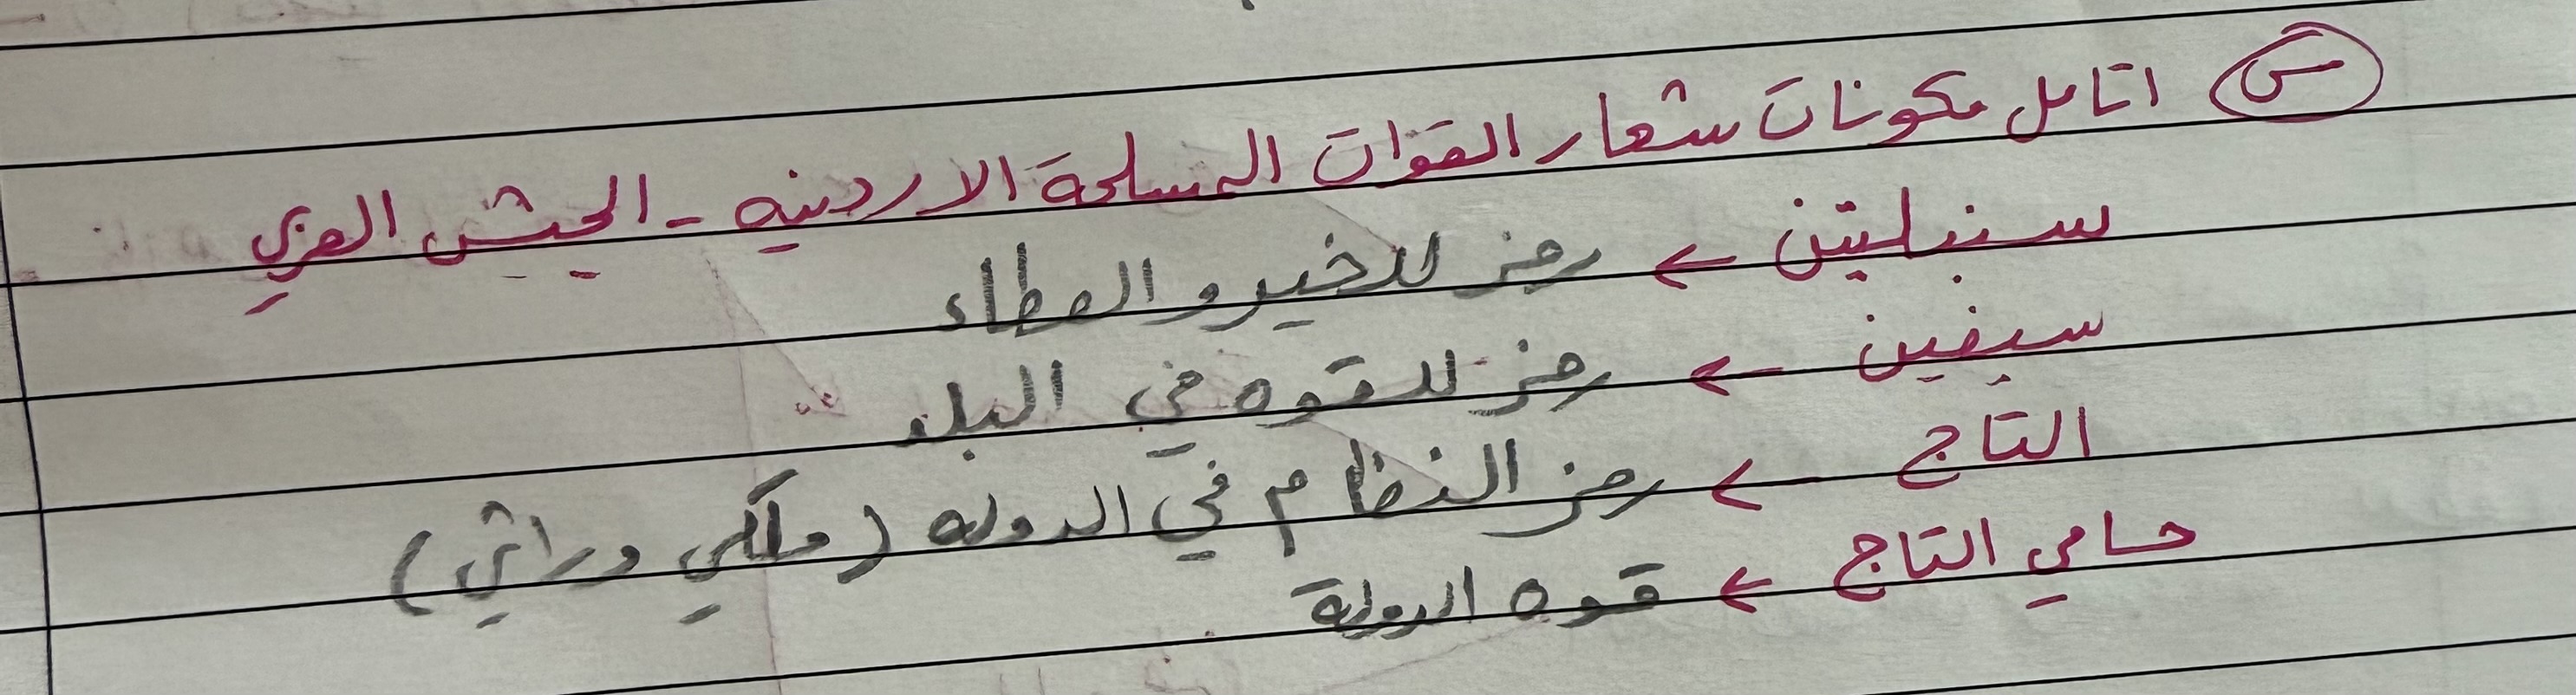 س اتامل مكونات شعار القوات المسلحة الاردنيه - الجيش العربي
سنبلتين ← رمز للخير و العطاء
سيفين ← رمز للقوه في البلد
التاج ← رمز النظام في الدوله (ملكي وراثي)
حامي التاج ← قوه الدولة